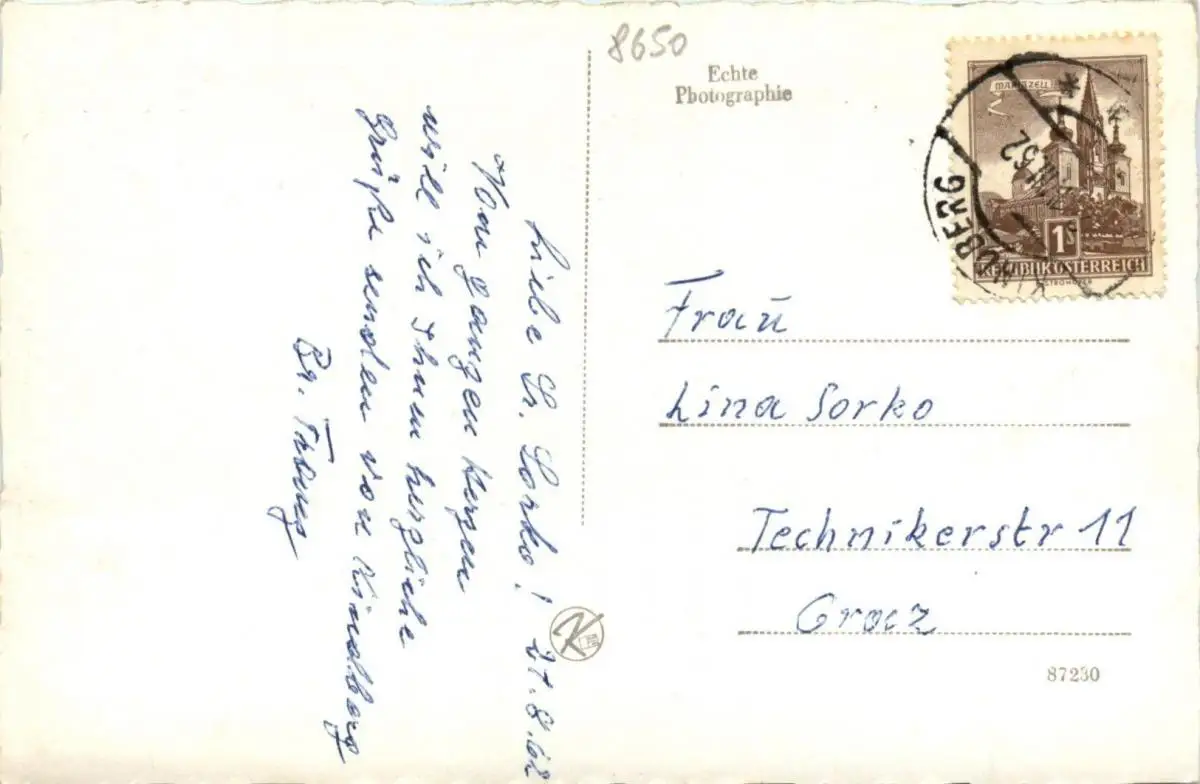 8650
Echte
Photographie
MARIAZELL
1S
REPUBLIK ÖSTERREICH
KINDBERG
Liebe Sr. Sorko! 21.8.62
Von ganzen Herzen
will ich Ihnen herzliche
Grüße senden von Kindberg
Frau
Lina Sorko
Technikerstr 11
Graz
87230